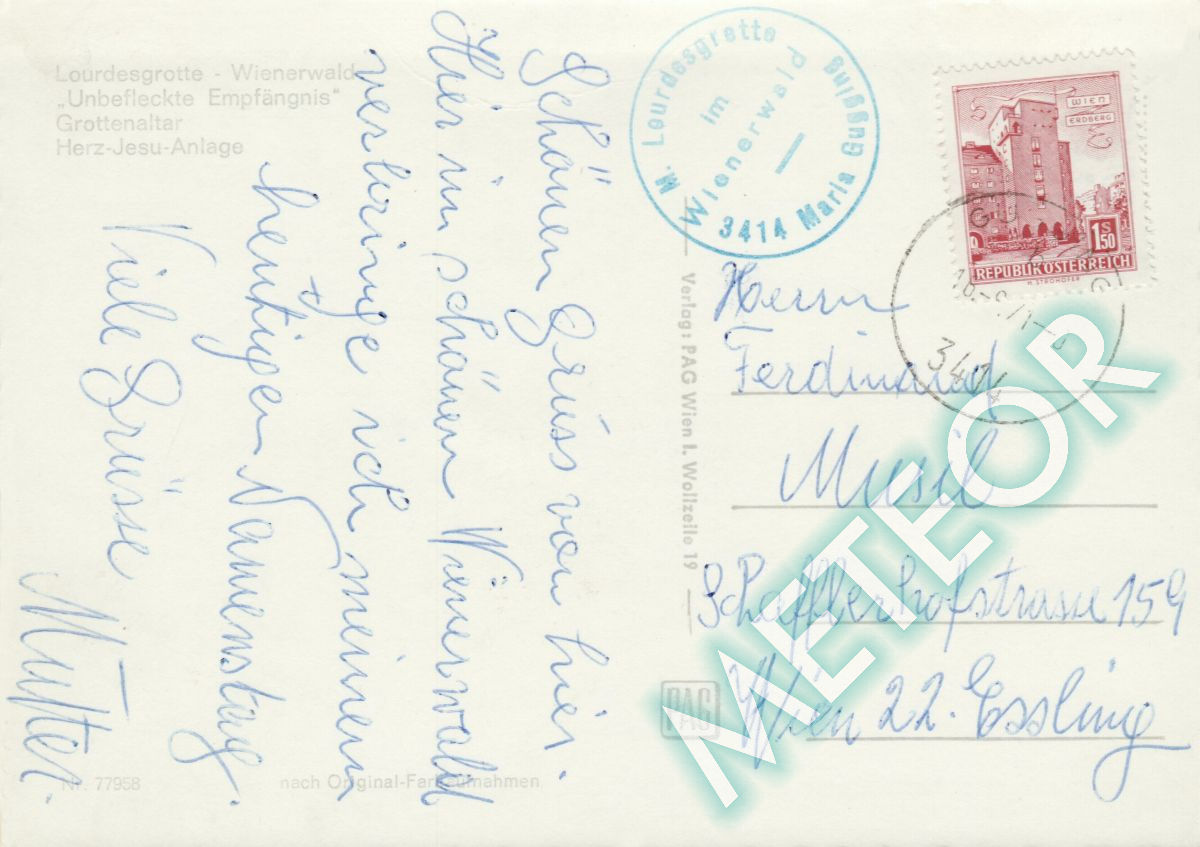 Lourdesgrotte - Wienerwald
„Unbefleckte Empfängnis"
Grottenaltar
Herz-Jesu-Anlage
Schönen Gruss von hier.
Hier im schönen Wienerwald
verbringe ich meinen
heutigen Namenstag.
Viele Grüsse
Mutter.
Nr. 77958
nach Original-Farbaufnahmen
M. Lourdesgrotte
im
Wienerwald
3414 Maria Gugging
Verlag: PAG Wien I. Wollzeile 19
PAG
WIEN
ERDBERG
S
1.50
REPUBLIK ÖSTERREICH
H. STROHOFER
3414
Herrn
Ferdinand
Musil
Schafflerhofstrasse 159
Wien 22. Essling
METEOR